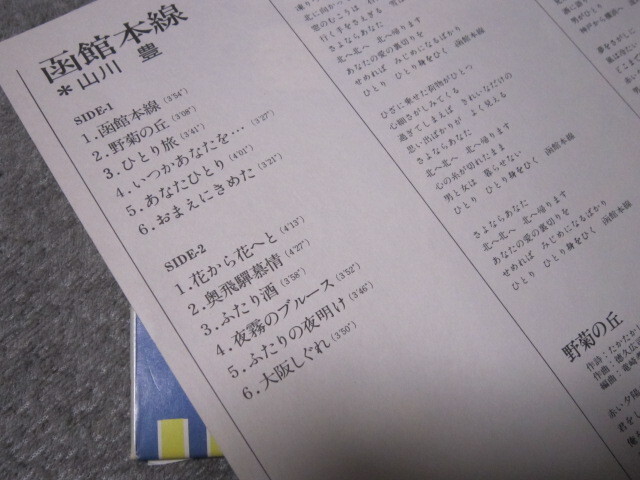 函館本線
＊山川 豊
SIDE-1
1.函館本線(3'54")
2.野菊の丘(3'08")
3.ひとり旅(3'41")
4.いつかあなたを…(3'27")
5.あなたひとり(4'01")
6.おまえにきめた(3'21")
SIDE-2
1.花から花へと(4'13")
2.奥飛驒慕情(4'27")
3.ふたり酒(3'58")
4.夜霧のブルース(3'52")
5.ふたりの夜明け(3'46")
6.大阪しぐれ(3'50")
さよならあなた
北へ北へ 北へ帰ります
あなたの愛の裏切りを
せめれば みじめになるばかり
ひとり ひとり身をひく 函館本線
ひざに乗せた荷物がひとつ
心細さがしみてくる
過ぎてしまえば きれいなだけの
思い出ばかりが よく見える
さよならあなた
北へ北へ 北へ帰ります
心の糸が切れたまま
男と女は 暮らせない
ひとり ひとり身をひく 函館本線
さよならあなた
北へ北へ 北へ帰ります
あなたの愛の裏切りを
せめれば みじめになるばかり
ひとり ひとり身をひく 函館本線
野菊の丘
作詩：たかた
作曲：徳久広
編曲：竜崎
赤い夕陽
君をし